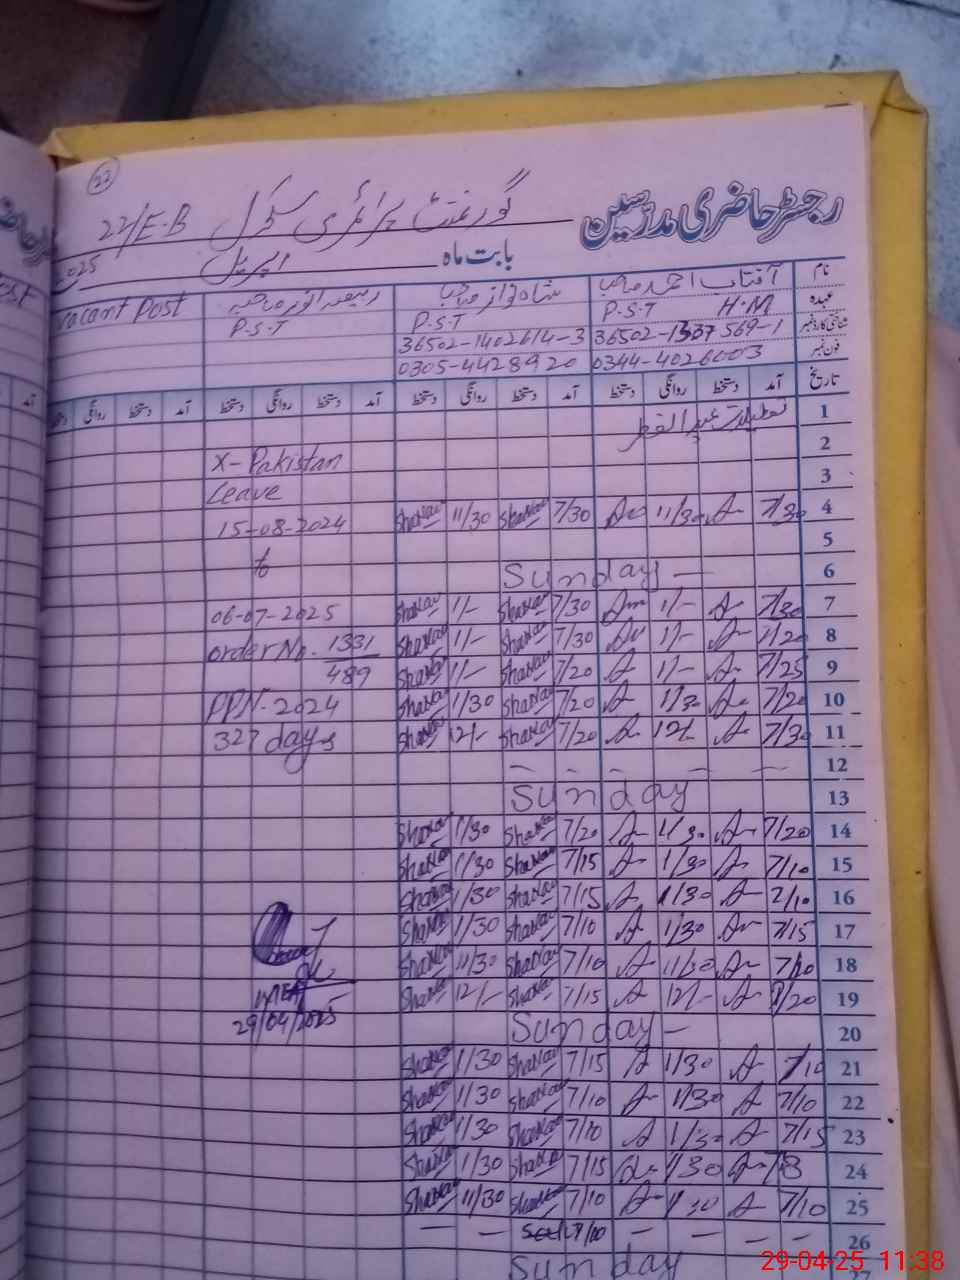 22
رجسٹر حاضری مدرسین
گورنمنٹ پرائمری سکول 22/E-B
بابت ماہ اپریل 2025
نام آفتاب احمد صاحب شاہ نواز صاحب Vacant Post
عہدہ P.S.T H.M P.S.T P.S.T
شناختی کارڈ نمبر 36502-1337569-1 36502-1402614-3
فون نمبر 0344-4026003 0305-4428920
تاریخ آمد دستخط روانگی دستخط آمد دستخط روانگی دستخط آمد دستخط روانگی دستخط آمد دستخط روانگی
1 تعطیلات عید الفطر
2 X-Pakistan
3 Leave
4 7/30 11/30 7/30 Shahnaz 11/30 Shahnaz 15-08-2024
5 to
6 Sunday
7 7/30 1/- 7/30 Shahnaz 1/- Shahnaz 06-07-2025
8 7/20 1/- 7/30 Shahnaz 1/- Shahnaz order No. 1331
9 7/25 1/- 7/20 Shahnaz 1/- Shahnaz 489
10 7/20 1/30 7/20 Shahnaz 1/30 Shahnaz PPN-2024
11 7/30 12/- 7/20 Shahnaz 12/- Shahnaz 327 days
12 — — — — —
13 Sunday
14 7/20 1/30 7/20 Shahnaz 1/30 Shahnaz
15 7/10 1/30 7/15 Shahnaz 1/30 Shahnaz
16 7/10 1/30 7/15 Shahnaz 1/30 Shahnaz
17 7/15 1/30 7/10 Shahnaz 1/30 Shahnaz
18 7/10 11/30 7/10 Shahnaz 11/30 Shahnaz
19 7/20 12/- 7/15 Shahnaz 12/- Shahnaz
29/04/2025
20 Sunday
21 7/10 1/30 7/15 Shahnaz 1/30 Shahnaz
22 7/10 1/30 7/10 Shahnaz 1/30 Shahnaz
23 7/15 1/30 7/10 Shahnaz 1/30 Shahnaz
24 1/30 7/15 Shahnaz 1/30 Shahnaz
25 7/10 11/30 7/10 Shahnaz 11/30 Shahnaz
26 — — — — —
27 Sunday
29-04-25 11:38